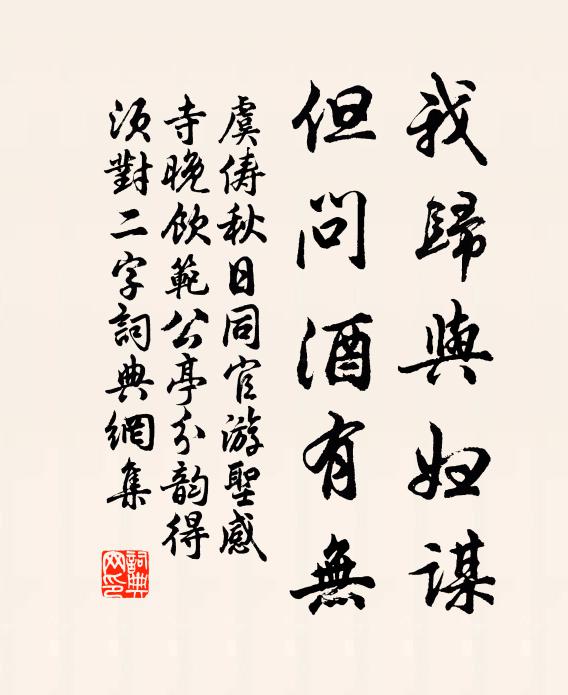 我歸與婦謀
但問酒有無
虞儔秋日同官游聖感
寺晚飲範公亭分韵得
須對二字詞典網集
詞典网印